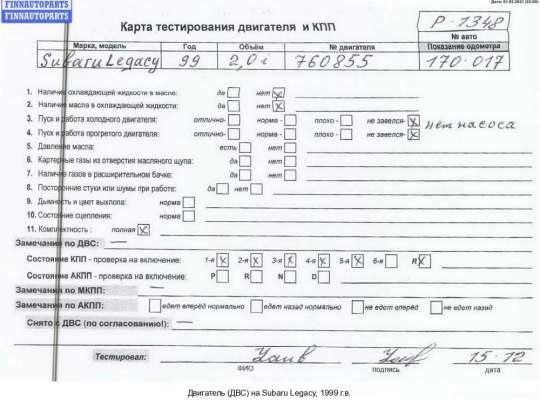 FINNAUTOPARTS
FINNAUTOPARTS
Дата: 01.03.2021 (23:09)
Карта тестирования двигателя и КПП
Р-1348
№ авто
Марка, модель Год Объём № двигателя Показание одометра
Subaru Legacy 99 2,0i 760855 170.017
1. Наличие охлаждающей жидкости в масле: да нет x
2. Наличие масла в охлаждающей жидкости: да нет x
3. Пуск и работа холодного двигателя: отлично- норма - плохо - не завелся- x нет насоса
4. Пуск и работа прогретого двигателя: отлично- норма - плохо - не завелся- x
5. Давление масла: есть нет
6. Картерные газы из отверстия масляного щупа: да нет
7. Наличие газов в расширительном бачке: да нет
8. Посторонние стуки или шумы при работе: да нет
9. Дымность и цвет выхлопа: норма
10. Состояние сцепления: норма
11. Комплектность : полная x
Замечания по ДВС: —
Состояние КПП - проверка на включение: 1-я x 2-я x 3-я x 4-я x 5-я x 6-я R x
Состояние АКПП - проверка на включение: P R N D
Замечания по МКПП: —
Замечания по АКПП: едет вперёд нормально едет назад нормально не едет вперёд не едет назад
Снято с ДВС (по согласованию!): —
Тестировал: 15.12
ФИО подпись дата
Двигатель (ДВС) на Subaru Legacy, 1999 г.в.